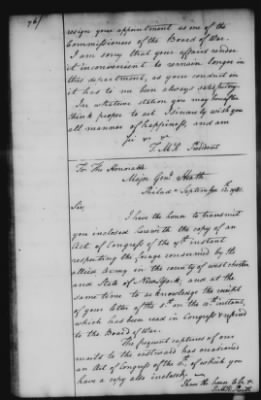 76/
resign your appointment as one of the
Commissioners of the Board of War.
I am sorry that your affairs render
it inconvenient to remain longer in
this department, as your conduct in
it has to me been always satisfactory.
In whatever station you may hereafter
think proper to act I sincerely wish you
all manner of happiness, and am
Sir &
T. M. K. President
To The Honorable
Major Genl. Heath
Philad. September 12, 1781.
Sir,
I have the honor to transmit
you inclosed herewith the copy of an
Act of Congress of the 7th instant
respecting the forage consumed by the
allied army in the county of west chester
and State of New York, and at the
same time to acknowledge the receipt
of your letter of the on the instant,
which has been read in Congress & referred
to the Board of War.
The frequent captures of our
mails to the eastward has occasioned
an Act of Congress of the of which you
have a copy also inclosed.
I have the honor to be &